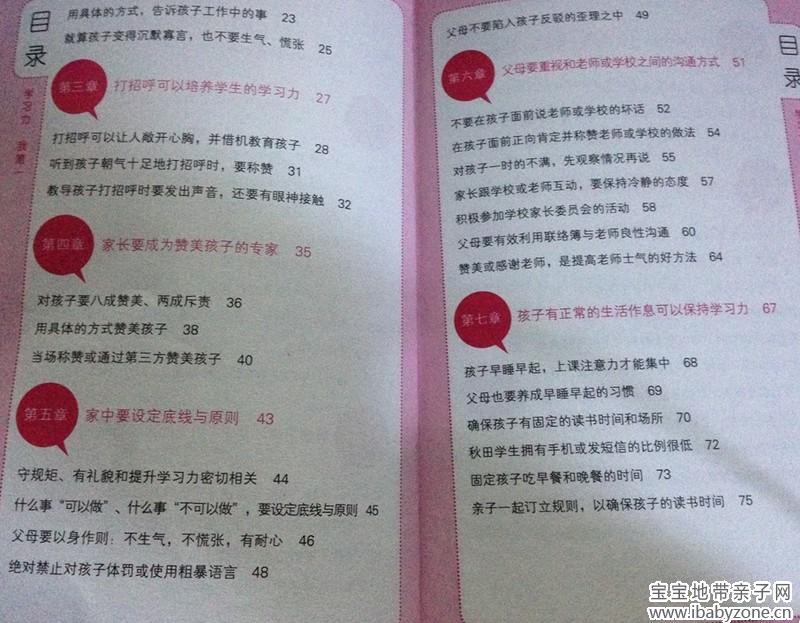 目录
学习力 我第一
用具体的方式，告诉孩子工作中的事 23
就算孩子变得沉默寡言，也不要生气、慌张 25
第三章 打招呼可以培养学生的学习力 27
打招呼可以让人敞开心胸，并借机教育孩子 28
听到孩子朝气十足地打招呼时，要称赞 31
教导孩子打招呼时要发出声音，还要有眼神接触 32
第四章 家长要成为赞美孩子的专家 35
对孩子要八成赞美、两成斥责 36
用具体的方式赞美孩子 38
当场称赞或通过第三方赞美孩子 40
第五章 家中要设定底线与原则 43
守规矩、有礼貌和提升学习力密切相关 44
什么事“可以做”、什么事“不可以做”，要设定底线与原则 45
父母要以身作则：不生气，不慌张，有耐心 46
绝对禁止对孩子体罚或使用粗暴语言 48
父母不要陷入孩子反驳的歪理之中 49
第六章 父母要重视和老师或学校之间的沟通方式 51
不要在孩子面前说老师或学校的坏话 52
在孩子面前正向肯定并称赞老师或学校的做法 54
对孩子一时的不满，先观察情况再说 55
家长跟学校或老师互动，要保持冷静的态度 57
积极参加学校家长委员会的活动 58
父母要有效利用联络簿与老师良性沟通 60
赞美或感谢老师，是提高老师士气的好方法 64
第七章 孩子有正常的生活作息可以保持学习力 67
孩子早睡早起，上课注意力才能集中 68
父母也要养成早睡早起的习惯 69
确保孩子有固定的读书时间和场所 70
秋田学生拥有手机或发短信的比例很低 72
固定孩子吃早餐和晚餐的时间 73
亲子一起订立规则，以确保孩子的读书时间 75
目录
宝宝地带亲子网
www.ibabyzone.cn